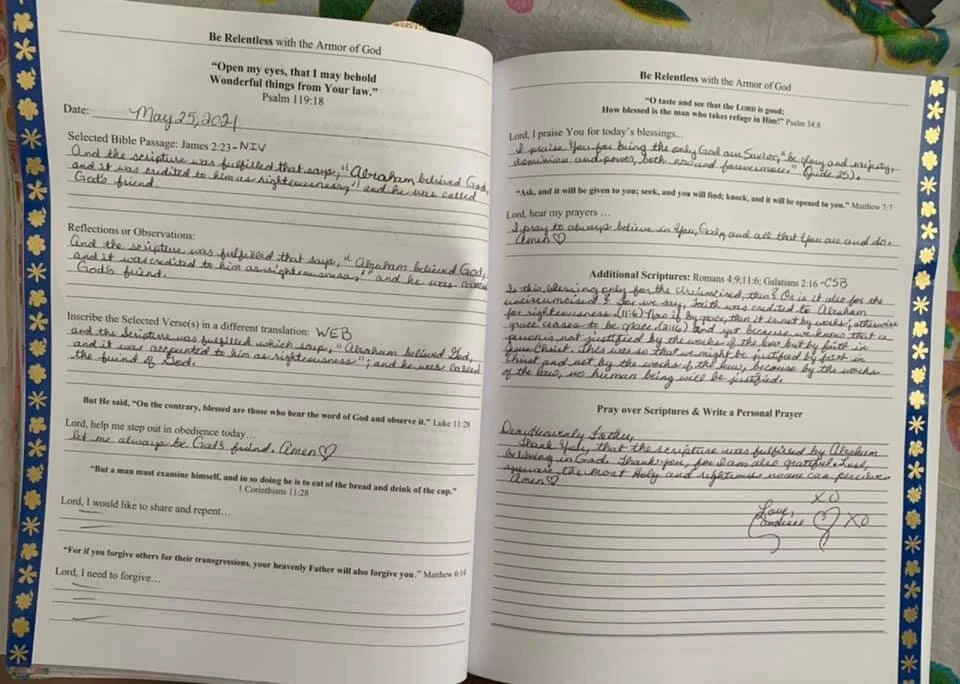 Be Relentless with the Armor of God
"Open my eyes, that I may behold
Wonderful things from Your law."
Psalm 119:18
Date: May 25, 2021
Selected Bible Passage: James 2:23 - NIV
And the scripture was fulfilled that says, "Abraham believed God,
and it was credited to him as righteousness," and he was called
God's friend.
Reflections or Observations:
And the scripture was fulfilled that says, "Abraham believed God,
and it was credited to him as righteousness," and he was called
God's friend.
Inscribe the Selected Verse(s) in a different translation: WEB
and the Scripture was fulfilled which says, "Abraham believed God,
and it was accounted to him as righteousness"; and he was called
the friend of God.
But He said, "On the contrary, blessed are those who hear the word of God and observe it." Luke 11:28
Lord, help me step out in obedience today…
let me always be God's friend. Amen ♡
"But a man must examine himself, and in so doing he is to eat of the bread and drink of the cup."
1 Corinthians 11:28
Lord, I would like to share and repent…
"For if you forgive others for their transgressions, your heavenly Father will also forgive you." Matthew 6:14
Lord, I need to forgive…
Be Relentless with the Armor of God
"O taste and see that the LORD is good;
How blessed is the man who takes refuge in Him!" Psalm 34:8
Lord, I praise You for today's blessings…
I praise You for being the only God our Savior, "be glory and majesty,
dominion and power, both now and forevermore." (Jude 25).
"Ask, and it will be given to you; seek, and you will find; knock, and it will be opened to you." Matthew 7:7
Lord, hear my prayers …
I pray to always believe in You, God, and all that You are and do.
Amen ♡
Additional Scriptures: Romans 4:9,11:6; Galatians 2:16 - CSB
Is this blessing only for the circumcised, then? Or is it also for the
uncircumcised? For we say, Faith was credited to Abraham
for righteousness. (11:6) Now if by grace, then it is not by works; otherwise
grace ceases to be grace. (2:16) and yet because we know that a
person is not justified by the works of the law but by faith in
Jesus Christ. This was so that we might be justified by faith in
Christ and not by the works of the law, because by the works
of the law, no human being will be justified.
Pray over Scriptures & Write a Personal Prayer
Dear Heavenly Father,
Thank You, that the scripture was fulfilled by Abraham
believing in God. Thank you, for I am also grateful. Lord,
you are the most Holy and righteous no one can perceive.
Amen ♡
XO
Love,
Candiece ♡ XO